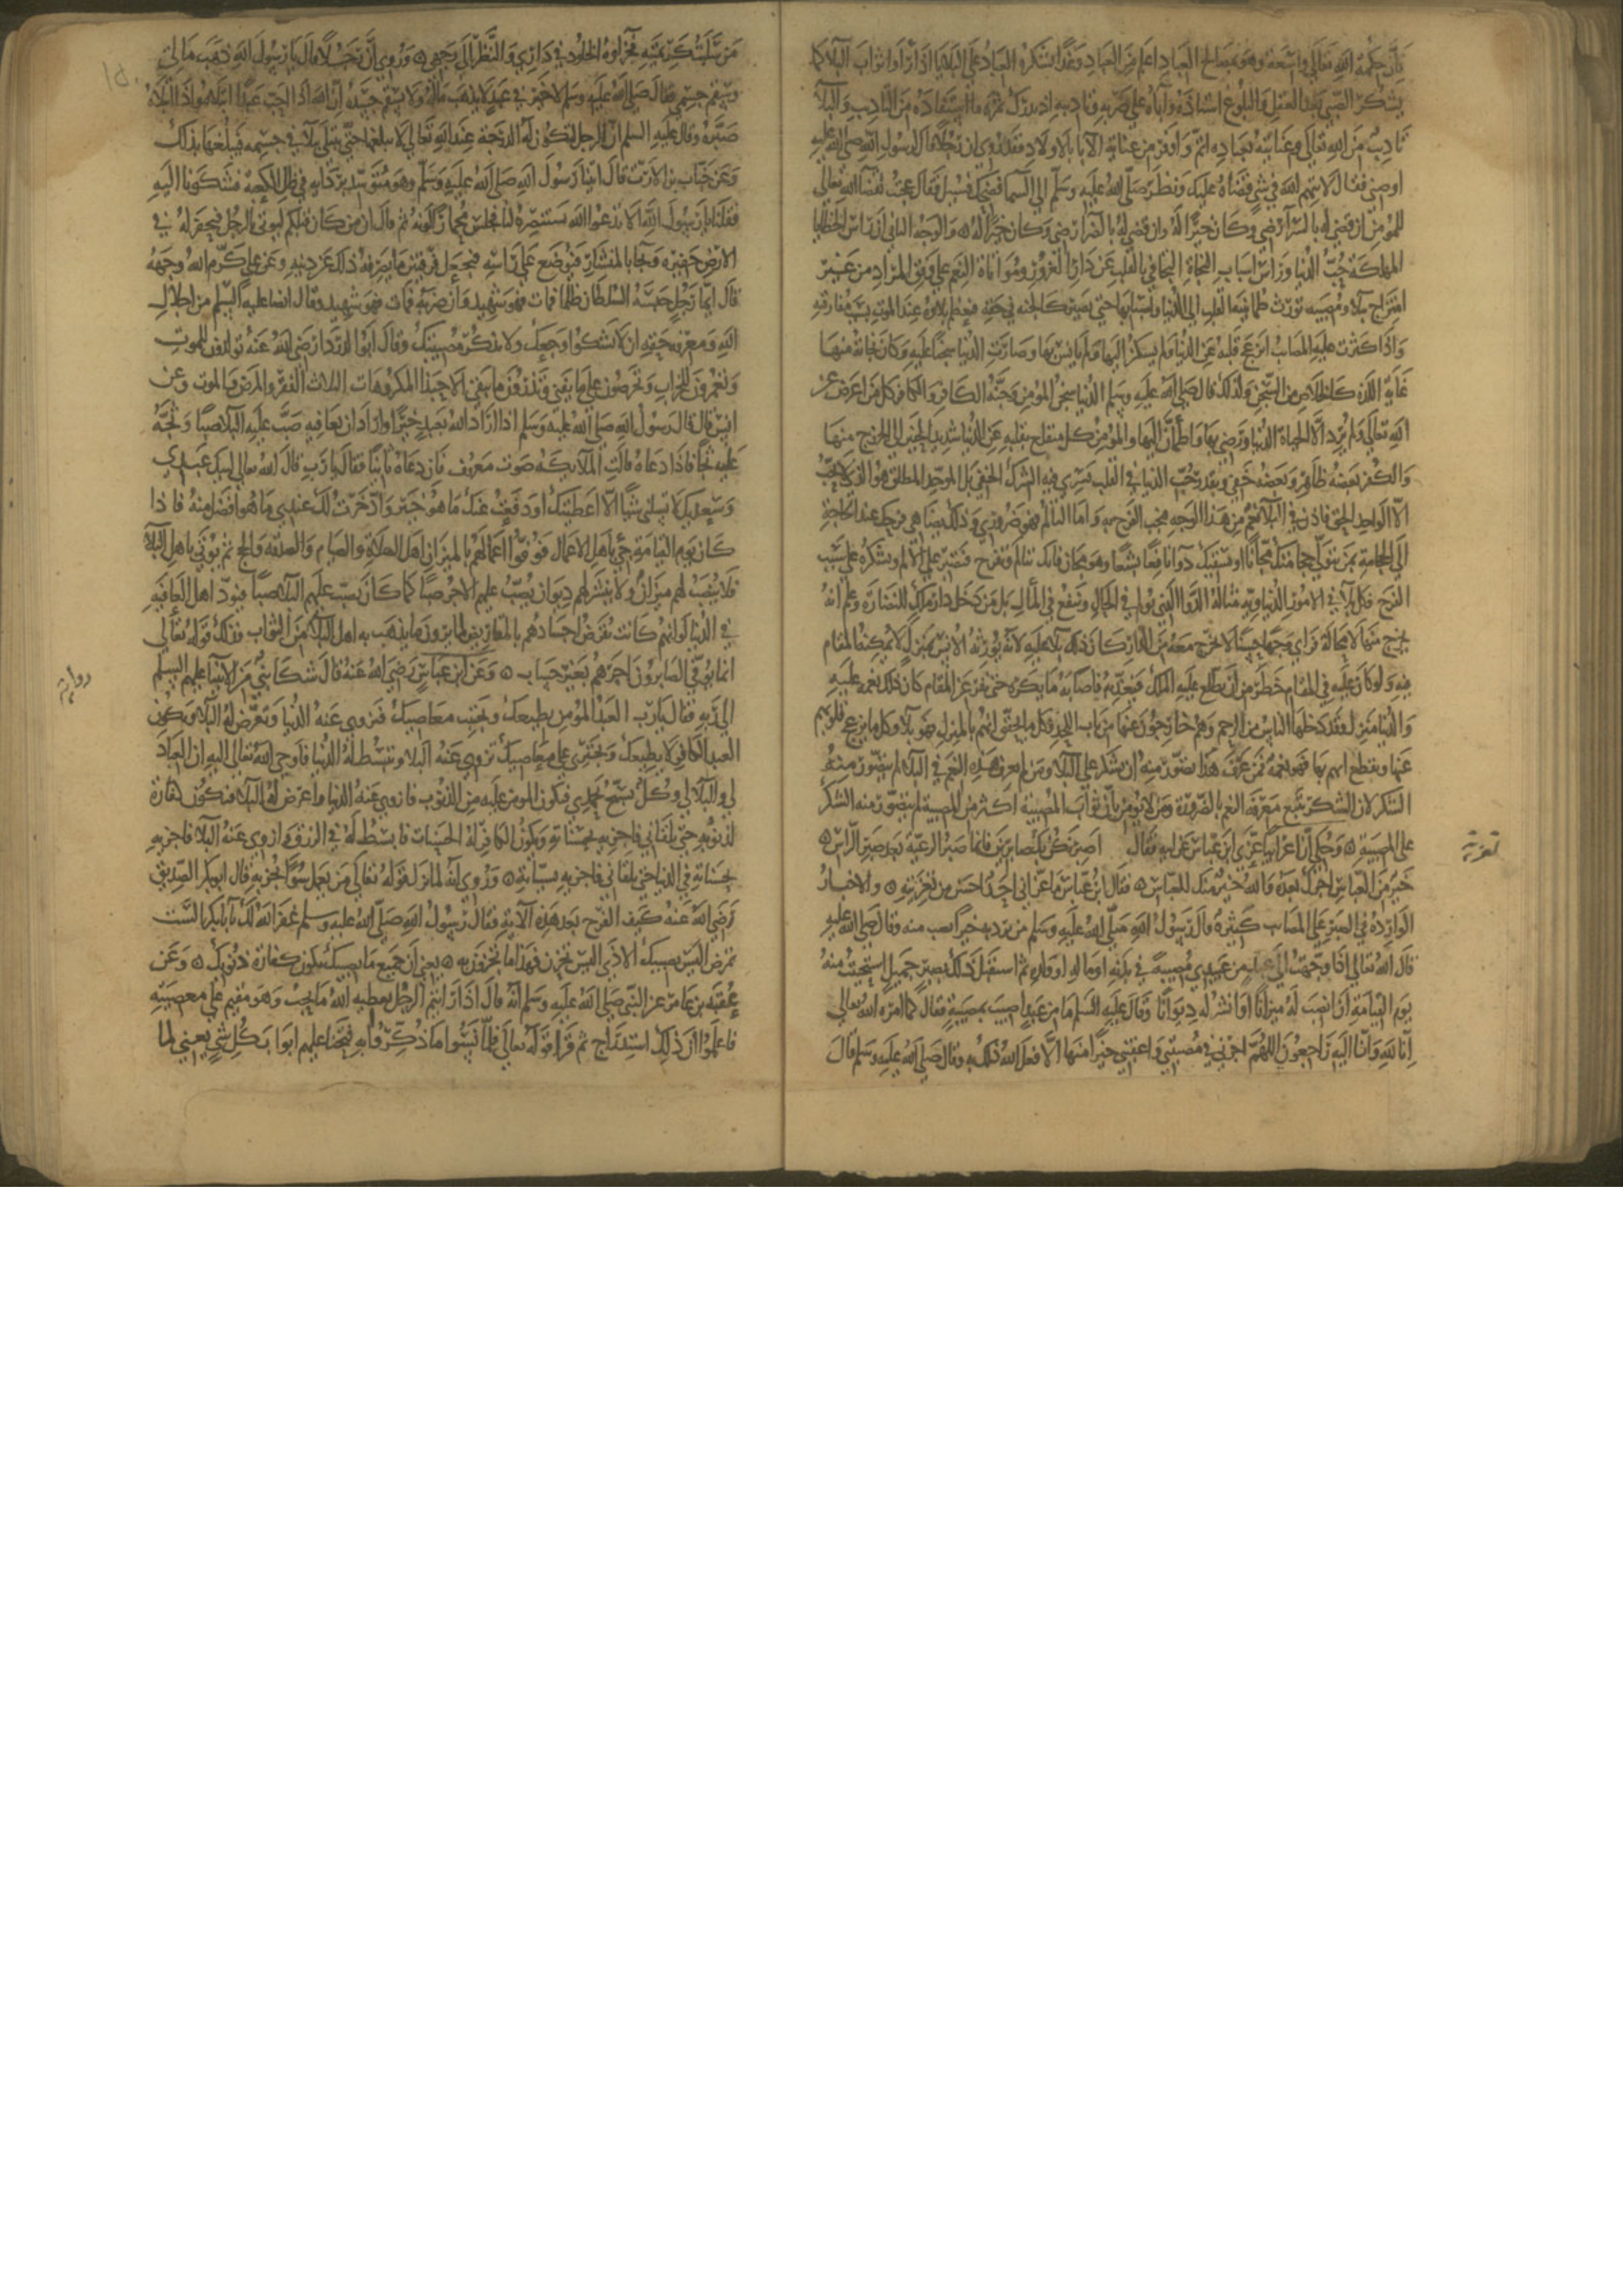 فان حكمة الله تعالى واسعة وهو بمصالح العباد اعلم من العباد وغدا يشكره العباد على البلايا اذا راوا ثواب البلا كما
يشكر الصبي بعد العقل والبلوغ استاذه واباه على ضربه وتاديبه اذ يدرك ثمره ما استفاده من التاديب والبلا
تاديب من الله تعالى وعنايته بعباده اتم واوفر من عناية الابا بالاولاد فقد روي ان رجلا قال لرسول الله صلى الله عليه
اوصني فقال لا تتهم الله في شي قضاه عليك ونظر صلى الله عليه وسلم الى السما فضحك فسيل فقال عجبت لقضا الله تعالى
للمومن ان قضى له بالسرا رضي وكان خيرا له وان قضى له بالضرا رضي وكان خيرا له ۞ والوجه الثاني ان راس الخطايا
المهلكة حب الدنيا وراس اسباب النجاة التجافي بالقلب عن دار الغرور ومواتاة النعم على وفق المراد من غير
امتزاج ببلا ومصيبه تورث طمانينة القلب الى الدنيا وانسه بها حتى تصير كالجنه في حقه فيعظم بلاوه عند الموت بسبب مفارقته
واذا كثرت عليه المصايب انزعج قلبه عن الدنيا ولم يسكن اليها ولم يانس بها وصارت الدنيا سجنا عليه وكان نجاته منها
غاية اللذه كالخلاص من السجن ولذلك قال صلى الله عليه وسلم الدنيا سجن المومن وجنة الكافر والكافر كل من اعرض عن
الله تعالى ولم يرد الا الحياة الدنيا ورضي بها واطمان اليها والمومن كل منقلع بقلبه عن الدنيا شديد الحنين الى الخروج منها
والكفر بعضه ظاهر وبعضه خفي وبقدر حب الدنيا في القلب يسري فيه الشرك الخفي بل الموحد المطلق هو الذي لا يحب
الا الواحد الحق فاذن في البلا نعم من هذا الوجه فيجب الفرح به واما التالم فهو ضروري وذلك يضاهي فرحك عند الحاجة
الى الحجامة بمن يتولى حجامتك مجانا او يسقيك دوا نافعا بشعا وهو مجان فانك تتالم وتفرح فتصبر على الالم وتشكره على سبب
الفرح فكل بلا في الامور الدنياويه مثاله الدوا الذي يولم في الحال وينفع في المال بل من دخل دار ملك للنضارة وعلم انه
يخرج منها لا محالة فراى وجها حسنا لا يخرج معه من الدار كان ذلك بلا عليه لانه يورثه الانس بمنزل لا يمكنه المقام
فيه ولو كان عليه في المقام خطر من ان يطلع عليه الملك فيعذبه فاصابه ما يكره حتى نفره عن المقام كان ذلك نعمه عليه
والدنيا منزل وقد دخلها الناس من الرحم وهم خارجون عنها من باب اللحد فكل ما يحقق انسهم بالمنزل فهو بلا وكل ما يزعج قلوبهم
عنها ويقطع انسهم بها فهو نعمة فمن عرف هذا تصور منه ان يشكر على البلا ومن لم يعرف هذه النعم في البلا لم يتصور منه
الشكر لان الشكر يتبع معرفة النعم بالضرورة ومن لا يومن بان ثواب المصيبة اكثر من المصيبة لم يتصور منه الشكر
على المصيبة ۞ وحكي ان اعرابيا عزى ابن عباس عن ابيه فقال اصبر نكن بك صابرين فانما صبر الرعية بعد صبر الراس ۞
خير من العباس اجرك بعده والله خير منك للعباس ۞ فقال ابن عباس ما عزاني احد احسن من تعزيته ۞ والاخبار
الواردة في الصبر على المصايب كثيرة قال رسول الله صلى الله عليه وسلم من يرد به خيرا يصب منه وقال صلى الله عليه
قال الله تعالى اذا وجهت الى عبد من عبيدي مصيبة في بدنه او ماله او ولده ثم استقبل ذلك بصبر جميل استحييت منه
يوم القيامة ان انصب له ميزانا او انشر له ديوانا وقال عليه السلم ما من عبد اصيب بمصيبة فقال كما امره الله تعالى
انا لله وانا اليه راجعون اللهم اجرني في مصيبتي واعقبني خيرا منها الا فعل الله ذلك به وقال صلى الله عليه وسلم قال
تعزية
من سلبت كريمتيه فجزاوه الخلود في داري والنظر الى وجهي ۞ وروي ان رجلا قال يا رسول الله ذهب مالي
وسقم جسمي فقال صلى الله عليه وسلم لا خير في عبد لا يذهب ماله ولا يسقم جسده ان الله اذا احب عبدا ابتلاه واذا ابتلاه
صبره وقال عليه السلم ان الرجل لتكون له الدرجة عند الله تعالى لا يبلغها حتى يبتلى ببلا في جسمه فيبلغها بذلك
وعن خباب بن الارت قال اتينا رسول الله صلى الله عليه وسلم وهو متوسد بردايه في ظل الكعبة فشكونا اليه
فقلنا يا رسول الله الا تدعوا الله تستنصره لنا فجلس محمارا لونه ثم قال ان من كان قبلكم ليوتى بالرجل فيحفر له في
الارض حفيرة ويجا بالمنشار فيوضع على راسه فيجعل فرقتين ما يصرفه ذلك عن دينه وعن علي كرم الله وجهه
قال ايما رجل حبسه السلطان ظلما فمات فهو شهيد وان ضربه فمات فهو شهيد وقال ايضا عليه السلم من اجلال
الله ومعرفة حقه ان لا تشكوا وجعك ولا تذكر مصيبتك وقال ابو الدردا رضي الله عنه تولدون للموت
وتعمرون للخراب وتحرصون على ما يفنى وتذرون ما يبقى الا حبذا المكروهات الثلاث الفقر والمرض والموت وعن
انس قال قال رسول الله صلى الله عليه وسلم اذا اراد الله بعبد خيرا واراد ان يصافيه صب عليه البلا صبا وثجه
عليه ثجا فاذا دعاه قالت الملايكه صوت معروف فان دعاه ثانيا فقال يا رب قال الله تعالى لبيك عبدي
وسعديك لا تسلني شيا الا اعطيتك او دفعت عنك ما هو خير وادخرت لك عندي ما هو افضل منه فاذا
كان يوم القيامة جي باهل الاعمال فوفوا اعمالهم بالميزان اهل الصلاة والصيام والصدقه والحج ثم يوتى باهل البلا
فلا ينصب لهم ميزان ولا ينشر لهم ديوان يصب عليهم الاجر صبا كما كان يصب عليهم البلا صبا فيود اهل العافيه
في الدنيا لو انهم كانت تقرض اجسادهم بالمقاريض لما يرون ما يذهب به اهل البلا من الثواب فذلك قوله تعالى
انما يوفى الصابرون اجرهم بغير حساب ۞ وعن ابن عباس رضي الله عنه قال شكا نبي من الانبيا عليهم السلم
الى ربه فقال يا رب العبد المومن يطيعك ويجتنب معاصيك فتزوي عنه الدنيا وتعرض له البلا ويكون
العبد الكافر لا يطيعك ويجتري على معاصيك تزوي عنه البلا وتبسط له الدنيا فاوحى الله تعالى اليه ان العباد
لي والبلا لي وكل يسبح بحمدي فيكون المومن عليه من الذنوب فازوي عنه الدنيا واعرض له البلا فيكون كفارة
لذنوبه حتى يلقاني فاجزيه بحسناته ويكون الكافر له الحسنات فابسط له في الرزق وازوي عنه البلا فاجزيه
بحسناته في الدنيا حتى يلقاني فاجزيه بسيئاته ۞ وروي انه لما نزل قوله تعالى من يعمل سوءا يجز به قال ابو بكر الصديق
رضي الله عنه كيف الفرح بعد هذه الاية فقال رسول الله صلى الله عليه وسلم غفر الله لك يا ابا بكر الست
تمرض اليس يصيبك الاذى اليس تحزن فهذا ما تجزون به ۞ يعني ان جميع ما يصيبك يكون كفارة ذنوبك ۞ وعن
عقبة بن عامر عن النبي صلى الله عليه وسلم انه قال اذا رايتم الرجل يعطيه الله ما يحب وهو مقيم على معصيته
فاعلموا ان ذلك استدراج ثم قرا قوله تعالى فلما نسوا ما ذكروا به فتحنا عليهم ابواب كل شي يعني لما